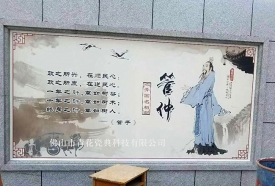 政之所興，在順民心，
政之所廢，在逆民心。
一年之計，莫如樹谷，
十年之計，莫如樹木，
終身之計，莫如樹人。
《管子》
管仲
佛山市青花瓷典科技有限公司